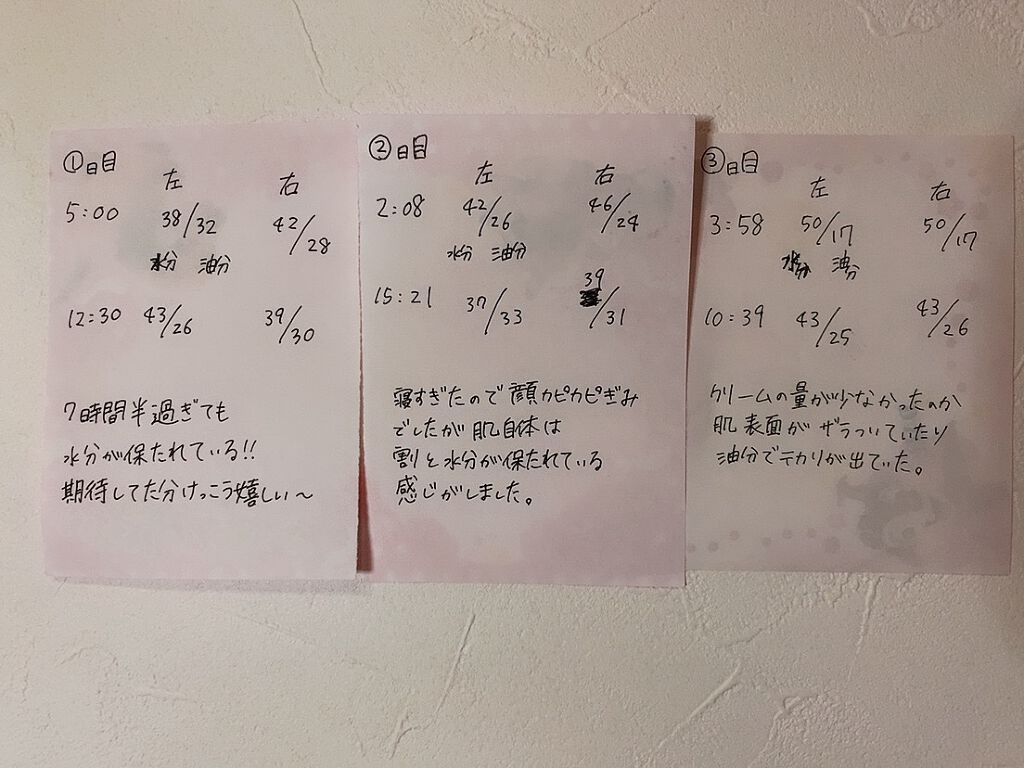 ①日目
左 右
5:00 38/32 42/28
水分 油分
12:30 43/26 39/30
7時間半過ぎても
水分が保たれている!!
期待してた分けっこう嬉しい〜
②日目
左 右
2:08 42/26 46/24
水分 油分
15:21 37/33 39/31
寝すぎたので顔カピカピぎみ
でしたが肌自体は
割と水分が保たれている
感じがしました。
③日目
左 右
3:58 50/17 50/17
水分 油分
10:39 43/25 43/26
クリームの量が少なかったのか
肌表面がザラついていたり
油分でテカリが出ていた。